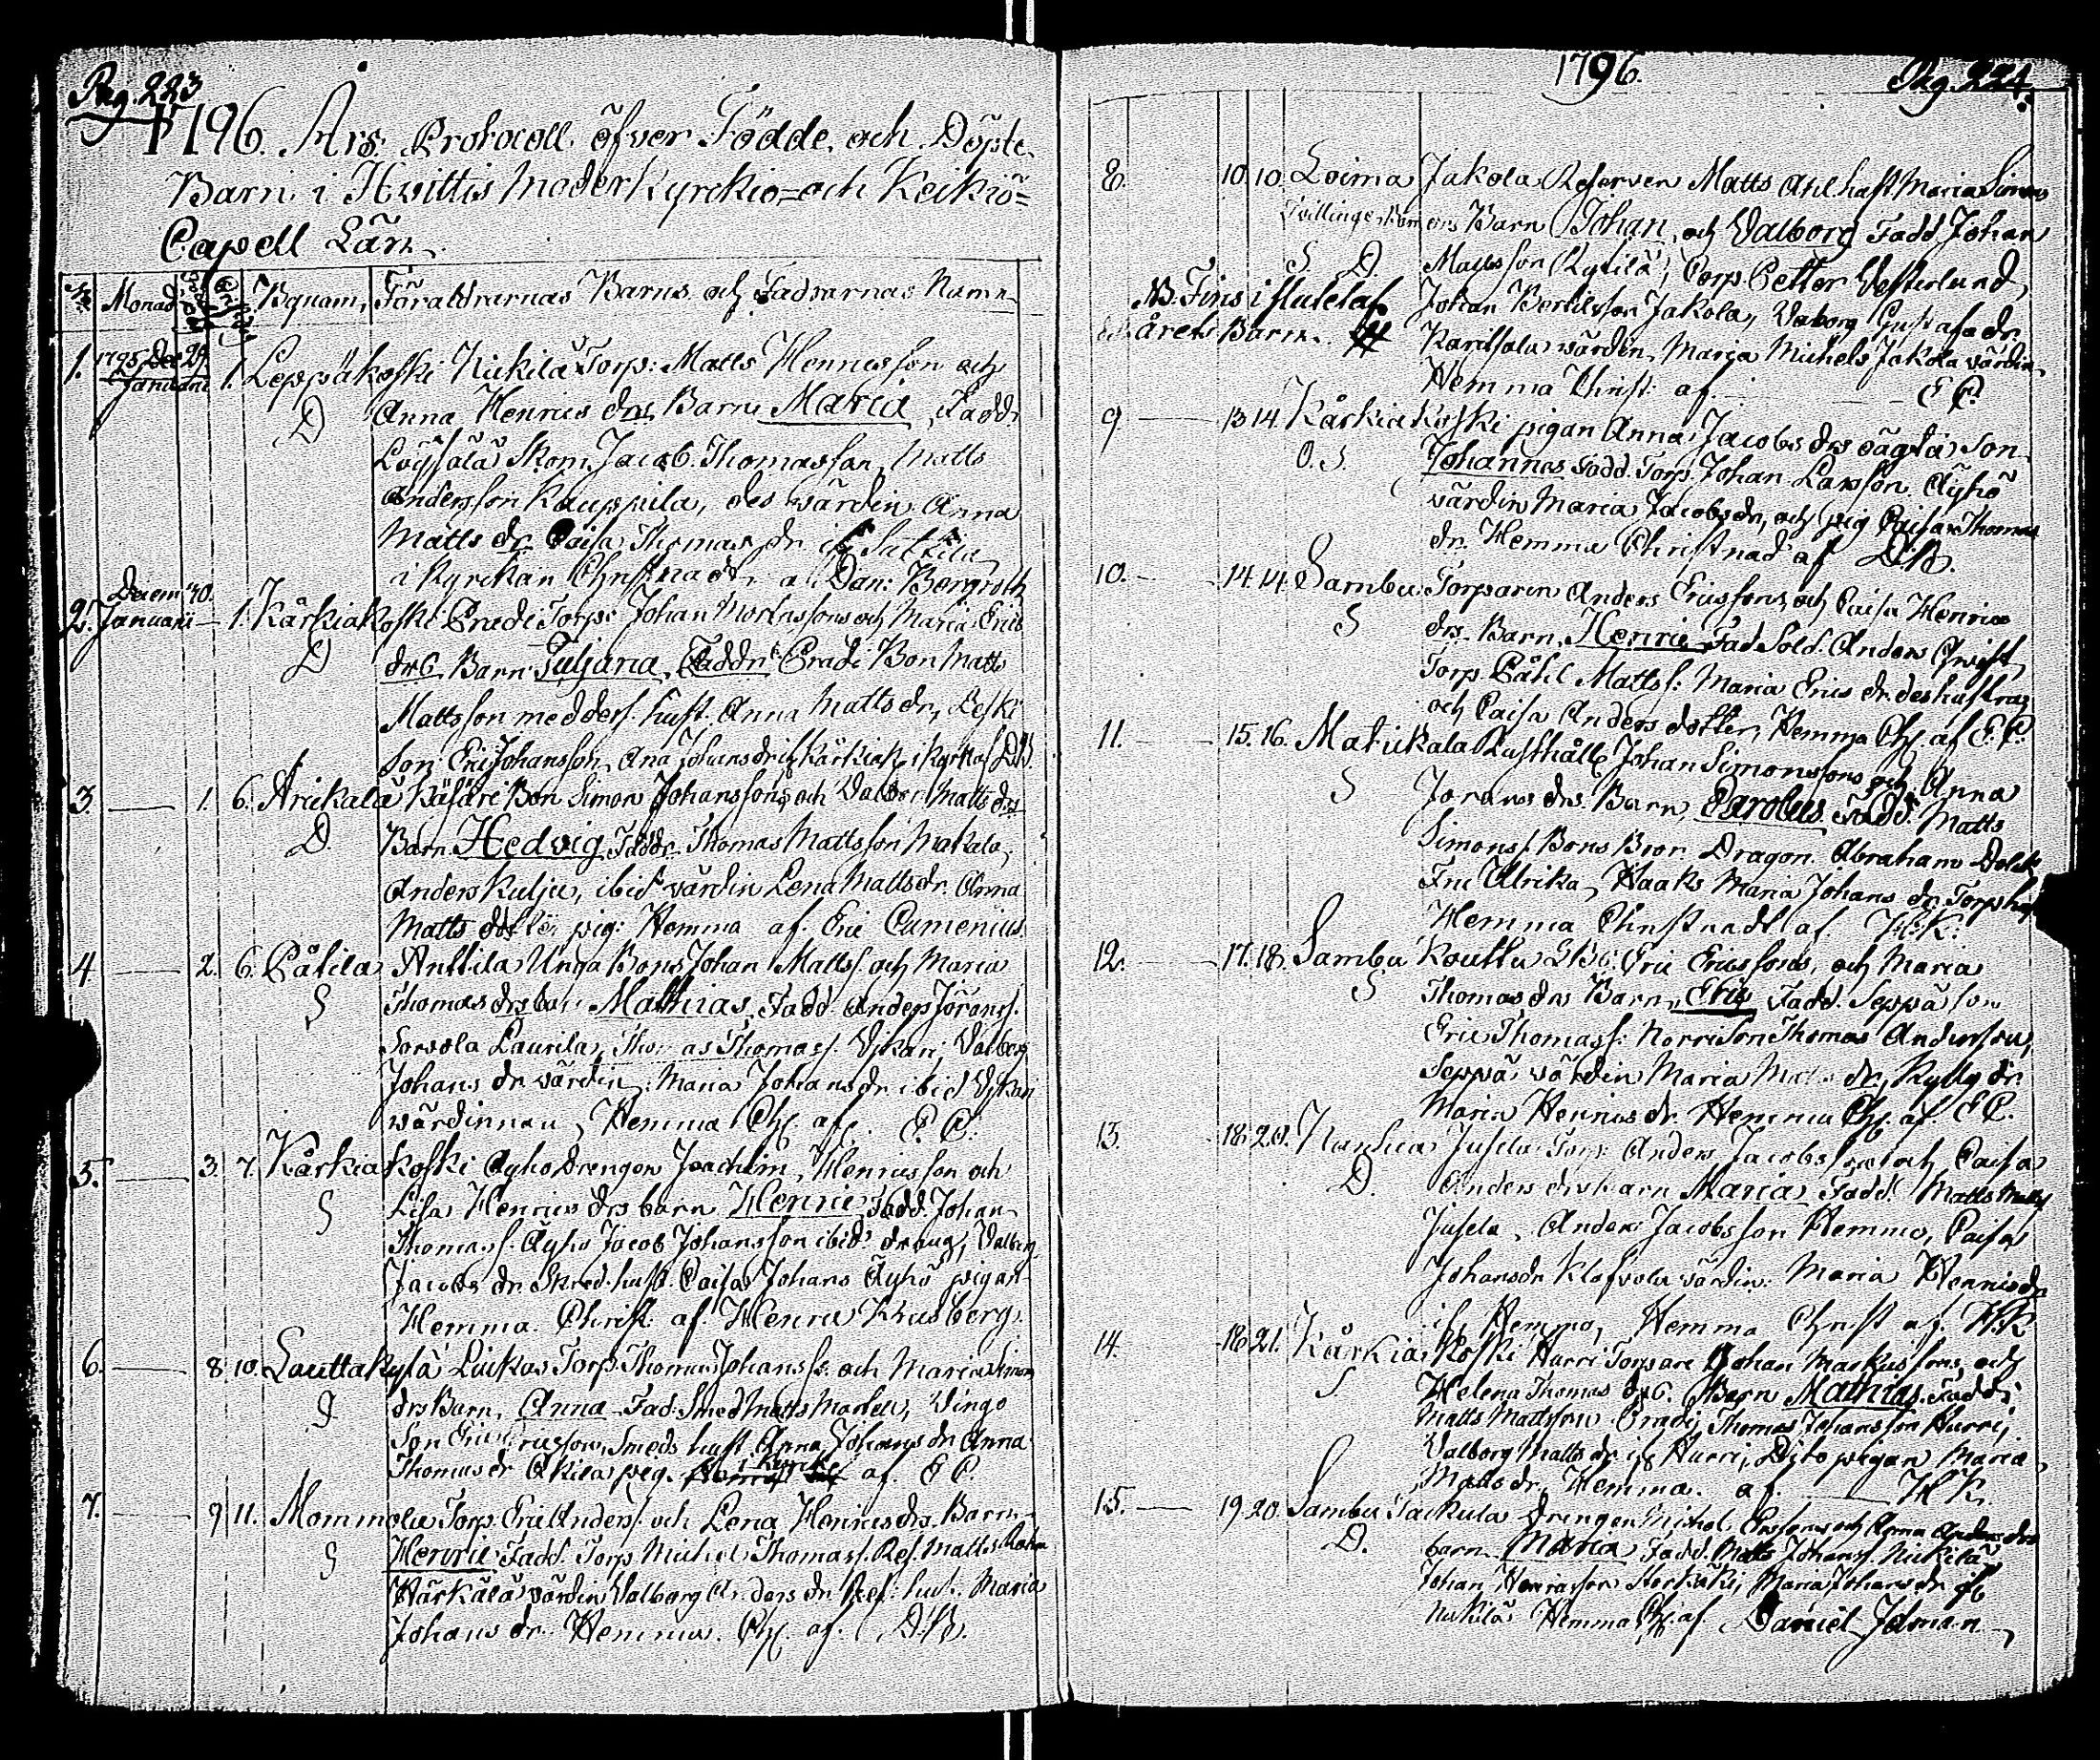 Pag. 223
1796. Års Protocoll öfver Födde och Döpte
Barn i Hvittis Moder Kyrckio- och Keikiö-
Capell Lärn.
No Monad Bynam, Föräldrarnas Barns och Faddrarnas Namn
1. 1795 Dec 29 Januarii 1. Leppäkoski Nickilä Torp: Matts Henricsson och
D Anna Henrics drs Barn Maria, Fadd
Skom. Jacob Thomasson, Matts
Andersson Kauppila, des wärdin Anna
Matts dr Caisa Thomas dr
i Kyrckan Christnadt af Dan: Bergroth
2. Decem 30. Januarii 1. Kårkiakoski Eradi Torp: Johan och Maria Erics
D drs Barn Juliana, Faddr Eradi Bon Matts
Mattsson med ders. hust. Anna Matts dr,
Son Eric Johansson, Ana Johans dr
3. 1. 6. Arickala Käjäri Bon Simon Johanssons och Valbor Matts drs
D Barn Hedvig, Fadd. Thomas Mattsson Makala,
Anders Kulju, ibid wärdin Lena Matts dr. Anna
Matts dotter pig: Hemma af. Eric Cumenius
4 2. 6. Påhila Anttila Unga Bons Johan Matts s. och Maria
S Thomas drs barn Mathias, Fadd. Anders Jörans s.
Sorvola Laurila, Thomas Thomas s. Vikari, Valborg
Johans dr wärdin, Maria Johans dr ibid Vikari
wärdinnan, Hemma Chr. af. E. C.
5. 3. 7. Kårkiakoski Äyhö drengen Joachim Henricsson och
S Lisa Henrics drs barn Henric, Fadd. Johan
Thomas s. Äyhö Jacob Johansson ibid. dräng, Valborg
Jacobs dr Skred. hust. Caisa Johans Äyhö pigan
Hemma Christ: af Henric Krusberg.
6. 8 10. Lauttakylä Luckas Torp. Thomas Johans s. och Maria Simon
D drs Barn, Anna Fad: Smed Matts Marlen, Vingo
Son Eric Ericsson, Smeds hust. Anna Johans dr Anna
Thomas dr pig. i Kyrck. af. E C.
7. 9 11. Mommola Torp. Eric Anders s. och Lena Henrics drs. Barn
S Henric Fadd. Torp. Michel Thomas s. Ref. Matts
Härkälä wärdin Valborg Anders dr Ref: hust. Maria
Johans dr. Hemma. Chr. af. D.B.
1796. Pag. 224.
8. 10. 10. Loima Jakola Reserven Matts hust Maria Simons
Tvillinge Barn drs Barn Johan, och Valborg Fadd Johan
S. D. Mattsson Kytilä, Corp. Petter Vesterlund,
NB. Fins i slutet af Johan Bertilsson Jakola, Vaborg Gustafs dr
årets Barn. # wärdin, Maria Michels Jakola wärdin
Hemma Christ: af. E C.
9 13 14. Kårkiakoski pigan Anna Jacobs drs oägta Son
O. S. Johannes Fadd. Torp. Johan Larsson. Äyhö
wärdin Maria Jacobs dr, och pig Caisa Thomas
dr. Hemma Christnad af D.B.
10. 14. 14. Sambu Torparen Anders Ericssons, och Caisa Henrics
S drs. Barn, Henric Fad Sold. Anders Qwist,
Torp. Påhl Matts s: Maria Erics dr. des hustru
och Caisa Anders dotter, Hemma Chr. af E: C.
11. 15. 16. Matukala Rusthåll Johan Simonssons och Anna
S Jörans drs. Barn, Carolus. Fadd. Matts
Simons s. Bons Bror Dragon. Abraham
Fru Ulrika Haaks Maria Johans dr. Torp
Hemma Christnadt af. H: K:
12. 17. 18. Sambu Koutta Eric Ericssons, och Maria
S Thomas drs Barn, Eric Fadd. Seppä son
Eric Thomas s: Norri Son Thomas Andersson,
Seppä wärdin Maria Matts dr,
Maria Henrics dr. Hemma Chr. af. E C.
13. 18. 20. Jusela Torp: Anders Jacobsson och Caisa
D. Anders drs barn Maria, Fadd. Matts Matts
Jusela, Anders Jacobsson Hemmo, Caisa
Johans dr wärdin: Maria Henrics dr
Hemmo, Hemma Christ af. H.K
14. 18 21. Kårkiakoski Hurri Torpare Johan Markussons och
S Helena Thomas drs. Barn Mathias, Fadd:
Matts Mattsson Eradi, Thomas Johansson Hurri,
Valborg Matts dr Hurri, Dito pigan Maria
Matts dr, Hemma. af. H K.
15. 19. 20. Sambu Tackula drengen Michel Ericssons och Anna Anders drs
D. barn Maria Fadd. Matts Johans s. Nickilä
Johan Henricsson, Maria Johans dr
Nickilä Hemma Chr. af Daniel Idman